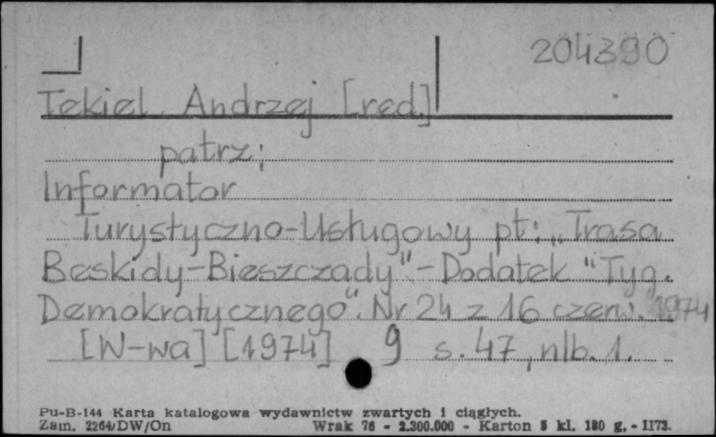 204390
Tekiel Andrzej [red.]
patrz:
Informator
Turystyczno-Usługowy pt: „Trasa
Beskidy-Bieszczady" - Dodatek "Tyg.
Demokratycznego". Nr 24 z 16 czerw. 1974
[W-wa] [1974] 9 s. 47, nlb. 1.
Pu-B-144 Karta katalogowa wydawnictw zwartych i ciągłych.
Zam. 2264/DW/On Wrak 76 - 2.300.000 - Karton 5 kl. 180 g. - II73.